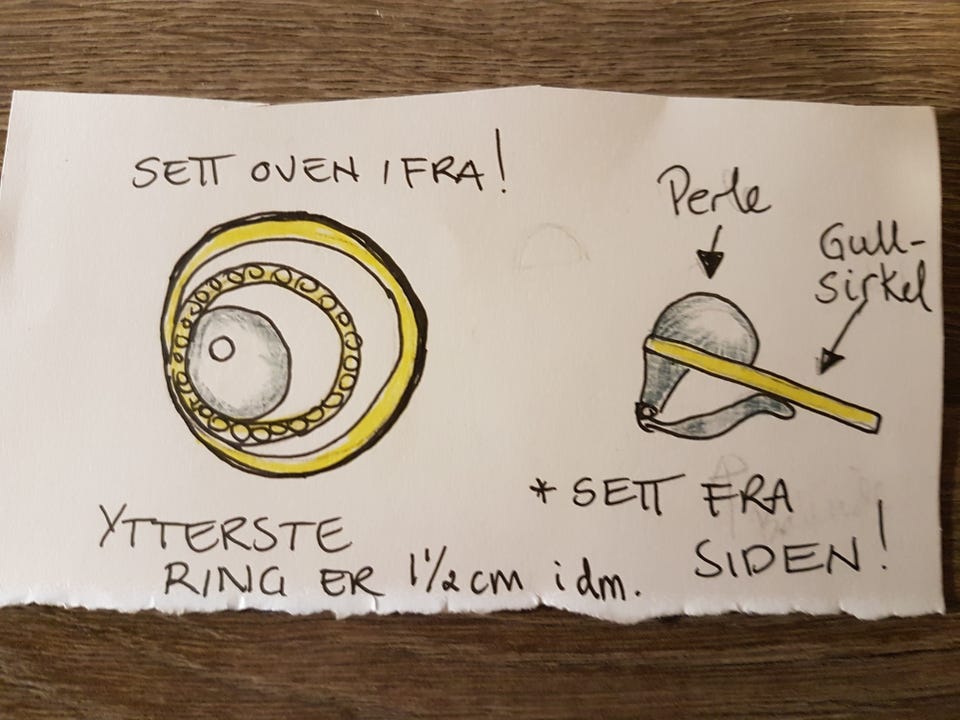 SETT OVEN IFRA!
Perle
Gull-
sirkel
* SETT FRA
SIDEN!
YTTERSTE
RING ER 1 1/2 cm i dm.